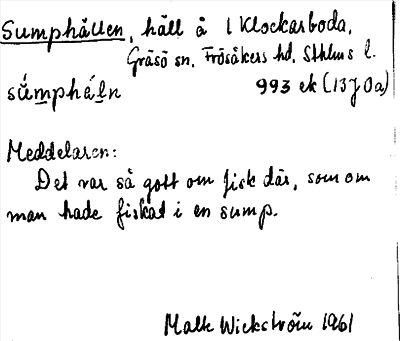 Sumphällen, häll å 1 Klockarboda,
Gräsö sn, Frösåkers hd, Sthlms l.
sǘmphäln 993 ek (13J0a)
Meddelaren:
Det var så gott om fisk där, som om
man hade fiskat i en sump.
Malte Wickström 1961